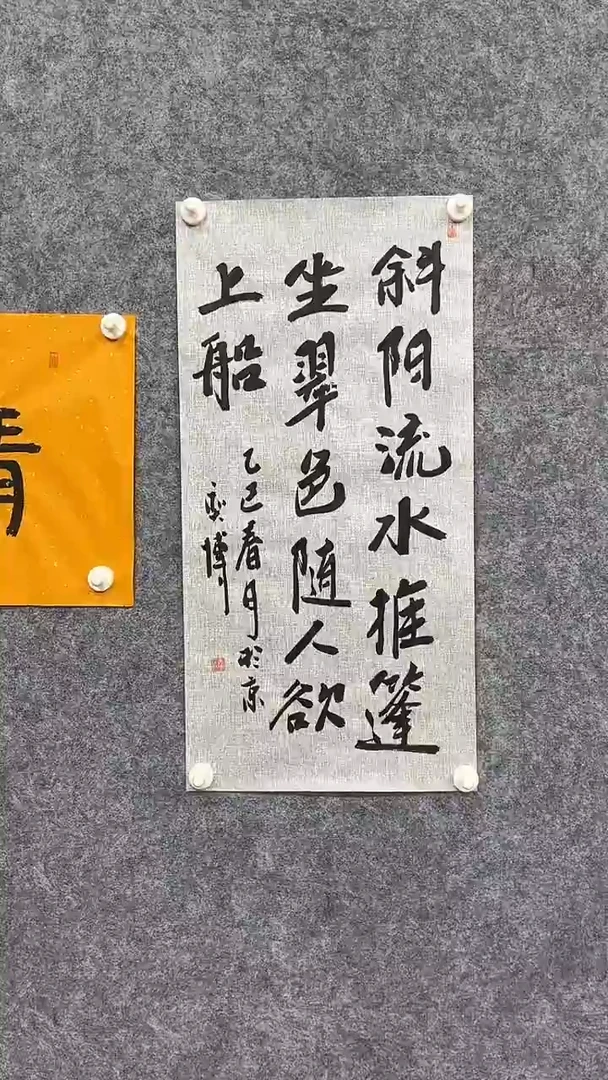 斜阳流水推篷
坐翠色随人欲
上船
乙巳春月於京